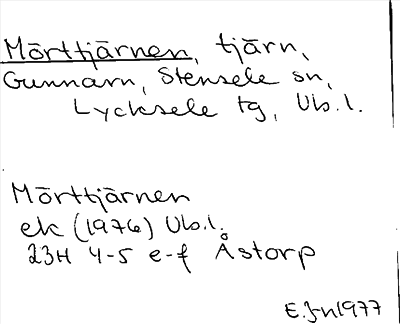 Mörttjärnen, tjärn,
Gunnarn, Stensele sn,
Lycksele tg, Vb.l.
Mörttjärnen
ek (1976) Vb.l.
23H 4-5 e-f Åstorp
E.J-n 1977